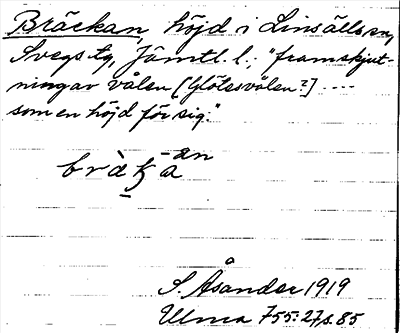 Bräckan, höjd i Linsälls sn,
Svegs tg, Jämtl. l.; "framskjut-
ningar vålen [Glötesvålen?] ....
som en höjd för sig."
S. Åsander 1919
Ulma 755:27, s. 85